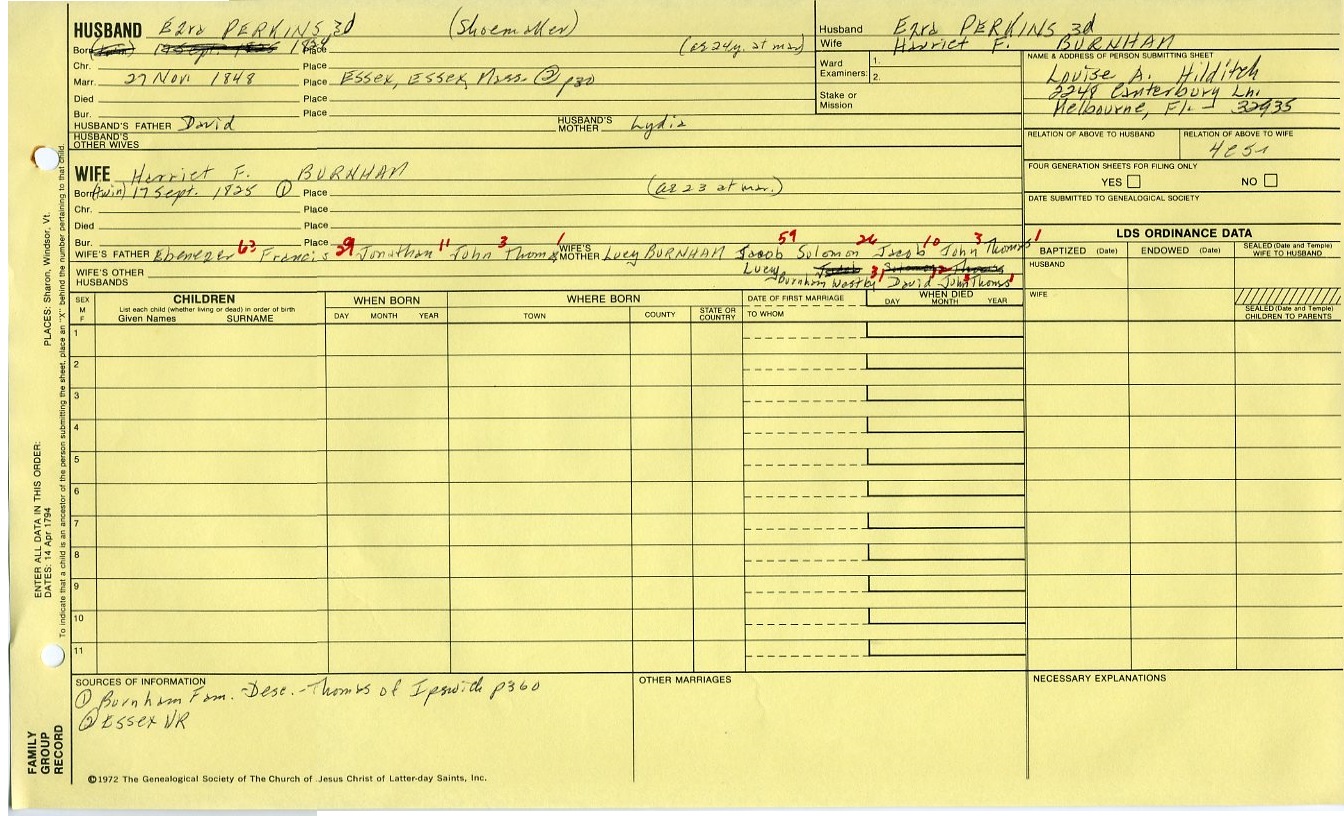 HUSBAND Ezra PERKINS, 3d (Shoemaker)
Born (twin) 17 Sept. 1825 1824 Place (as 24y. at mar)
Chr. Place
Marr. 27 Nov. 1848 Place Essex, Essex, Mass. ② p30
Died Place
Bur. Place
HUSBAND'S FATHER David HUSBAND'S MOTHER Lydia
HUSBAND'S OTHER WIVES
Husband Ezra PERKINS 3d
Wife Harriet F. BURNHAM
Ward Examiners: 1.
2.
Stake or Mission
NAME & ADDRESS OF PERSON SUBMITTING SHEET
Louise A. Hilditch
2248 Canterbury Ln.
Melbourne, Fl. 32935
RELATION OF ABOVE TO HUSBAND RELATION OF ABOVE TO WIFE
FOUR GENERATION SHEETS FOR FILING ONLY
YES NO
DATE SUBMITTED TO GENEALOGICAL SOCIETY
WIFE Harriet F. BURNHAM
Born (twin) 17 Sept. 1825 ① Place (as 23 at mar.)
Chr. Place
Died Place
Bur. Place
WIFE'S FATHER Ebenezer 63 Francis 29 Jonathan 11 John 3 Thomas 1 WIFE'S MOTHER Lucy BURNHAM Jacob 59 Solomon 26 Jacob 10 John 3 Thomas 1
Lucy Burnham Westby 31 David 12 John 3 Thomas 1
WIFE'S OTHER HUSBANDS
LDS ORDINANCE DATA
BAPTIZED (Date) ENDOWED (Date) SEALED (Date and Temple) WIFE TO HUSBAND
HUSBAND
WIFE
SEALED (Date and Temple) CHILDREN TO PARENTS
SEX M F
CHILDREN
List each child (whether living or dead) in order of birth
Given Names SURNAME
WHEN BORN
DAY MONTH YEAR
WHERE BORN
TOWN COUNTY STATE OR COUNTRY
DATE OF FIRST MARRIAGE
TO WHOM
WHEN DIED
DAY MONTH YEAR
1
2
3
4
5
6
7
8
9
10
11
SOURCES OF INFORMATION
① Burnham Fam. -Desc.-Thomas of Ipswich p360
② Essex VR
OTHER MARRIAGES
NECESSARY EXPLANATIONS
©1972 The Genealogical Society of The Church of Jesus Christ of Latter-day Saints, Inc.
FAMILY GROUP RECORD
ENTER ALL DATA IN THIS ORDER:
DATES: 14 Apr 1794
PLACES: Sharon, Windsor, Vt.
To indicate that a child is an ancestor of the person submitting the sheet, place an "X" behind the number pertaining to that child.